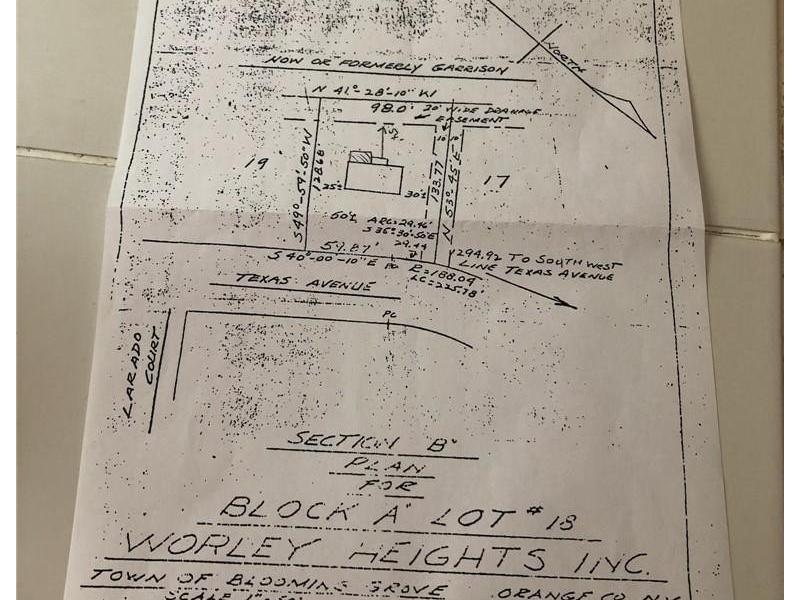 NORTH
NOW OR FORMERLY GARRISON
N 41°-28'-10" W
98.0' 20' WIDE DRAINAGE
EASEMENT
10 10
19
S 49°-59'-50" W
128.68'
25±
30±
133.77
N 53°-45' E
17
60± ARC=29.46'
S 36°-30'-50" E
29.44
59.87'
S 40°-00'-10" E PC
R=188.09
LC=225.78'
294.92 TO SOUTH WEST
LINE TEXAS AVENUE
TEXAS AVENUE
PC
LARADO
COURT
SECTION B"
PLAN
FOR
BLOCK A" LOT #18
WORLEY HEIGHTS INC.
TOWN OF BLOOMING GROVE ORANGE CO. N.Y.
SCALE 1"=50'